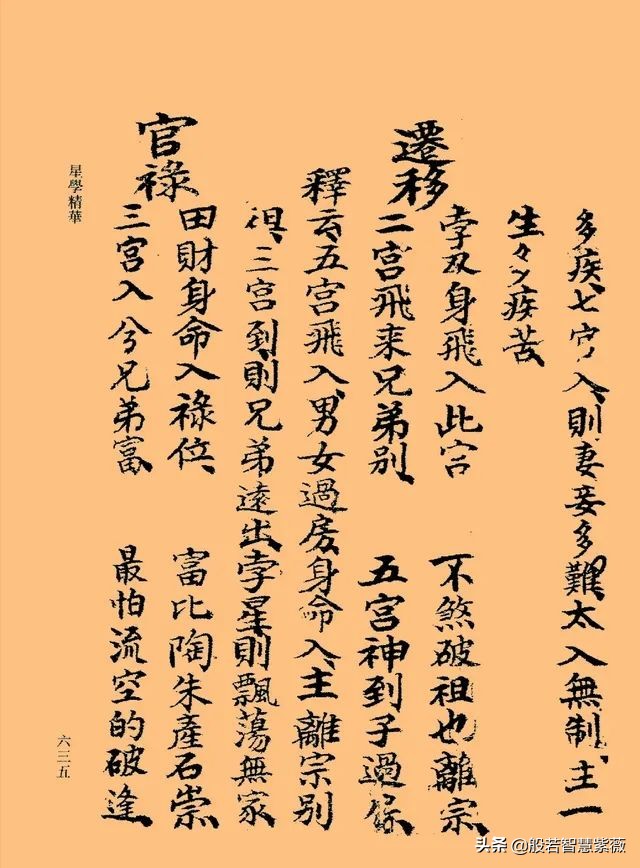 多疾、七宮入、則妻妾多難、太入無制、主一
生々多疾苦
遷移
孛及身飛入此宮　不煞破祖也離宗
二宮飛来兄弟別　五宮神到子過保
釋云、五宮飛入、男女過房、身命入、主離宗別
祖、三宮到、則兄弟遠出、孛星則飄蕩無家
官祿
田財身命入祿位　富比陶朱產石崇
三宮入兮兄弟富　最怕流空的破逢
星學精華
六三五
头条 @般若智慧紫薇